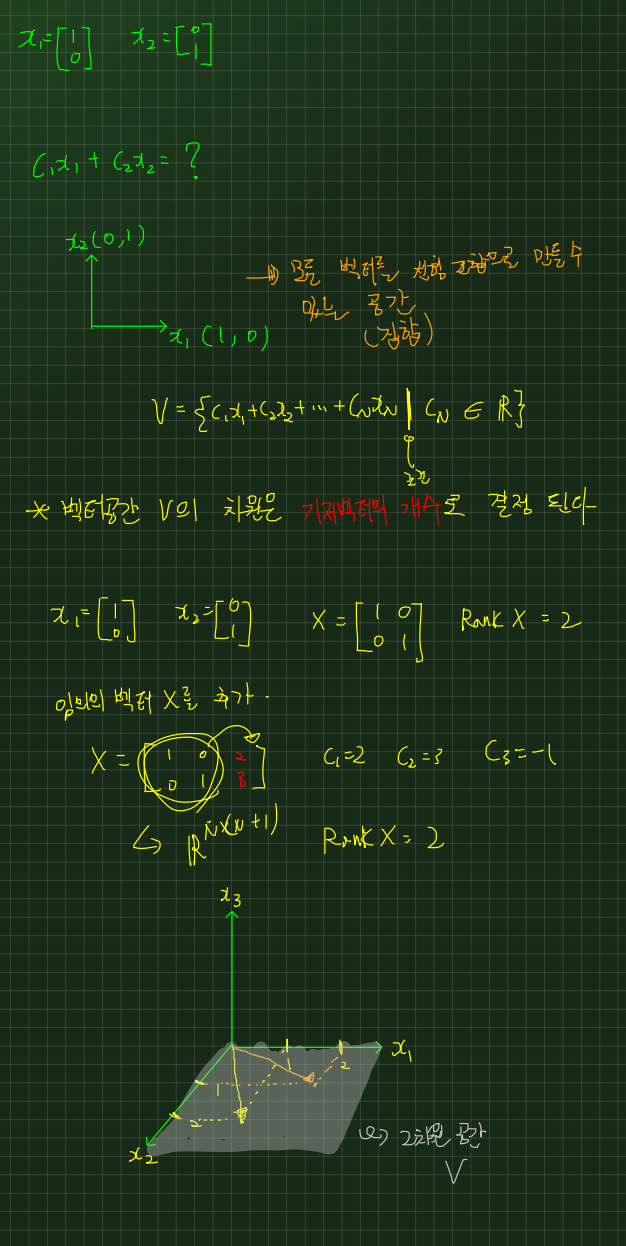 x₁=[1 0] x₂=[0 1]
C₁x₁ + C₂x₂ = ?
x₂(0,1)
→ 모든 벡터를 선형 조합으로 만들 수
있는 공간
(집합)
x₁(1,0)
V = {C₁x₁+C₂x₂+…+C_N x_N | C_N ∈ ℝ}
조건
* 벡터공간 V의 차원은 기저벡터의 개수로 결정 된다
x₁=[1 0] x₂=[0 1] X=[1 0 0 1] Rank X = 2
임의의 벡터 X를 추가.
X=[1 0 2 0 1 3] C₁=2 C₂=3 C₃=-1
↳ ℝ^N×(N+1) Rank X = 2
x₃
x₁
1 2
1
2
x₂
2차원 공간
V